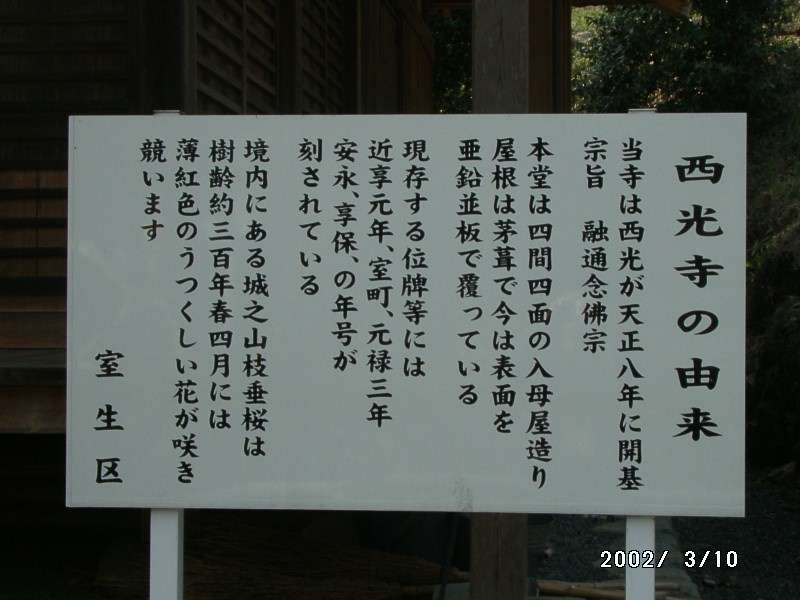 西光寺の由来
当寺は西光が天正八年に開基
宗旨　融通念佛宗
本堂は四間四面の入母屋造り
屋根は茅葺で今は表面を
亜鉛並板で覆っている
現存する位牌等には
近享元年、室町、元禄三年
安永、享保、の年号が
刻されている
境内にある城之山枝垂桜は
樹齢約三百年春四月には
薄紅色のうつくしい花が咲き
競います
室生区
2002/ 3/10